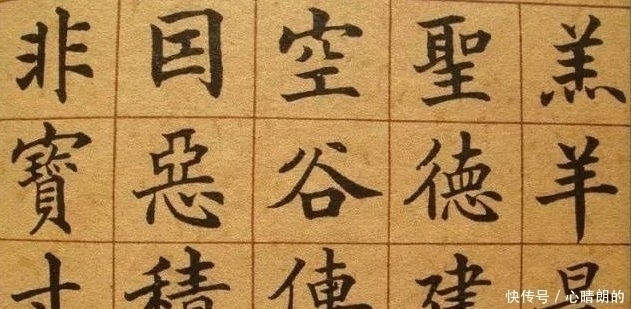 羔羊景
聖德建
空谷傳
囙惡積
非寶寸
快传号 / 心晴朗的